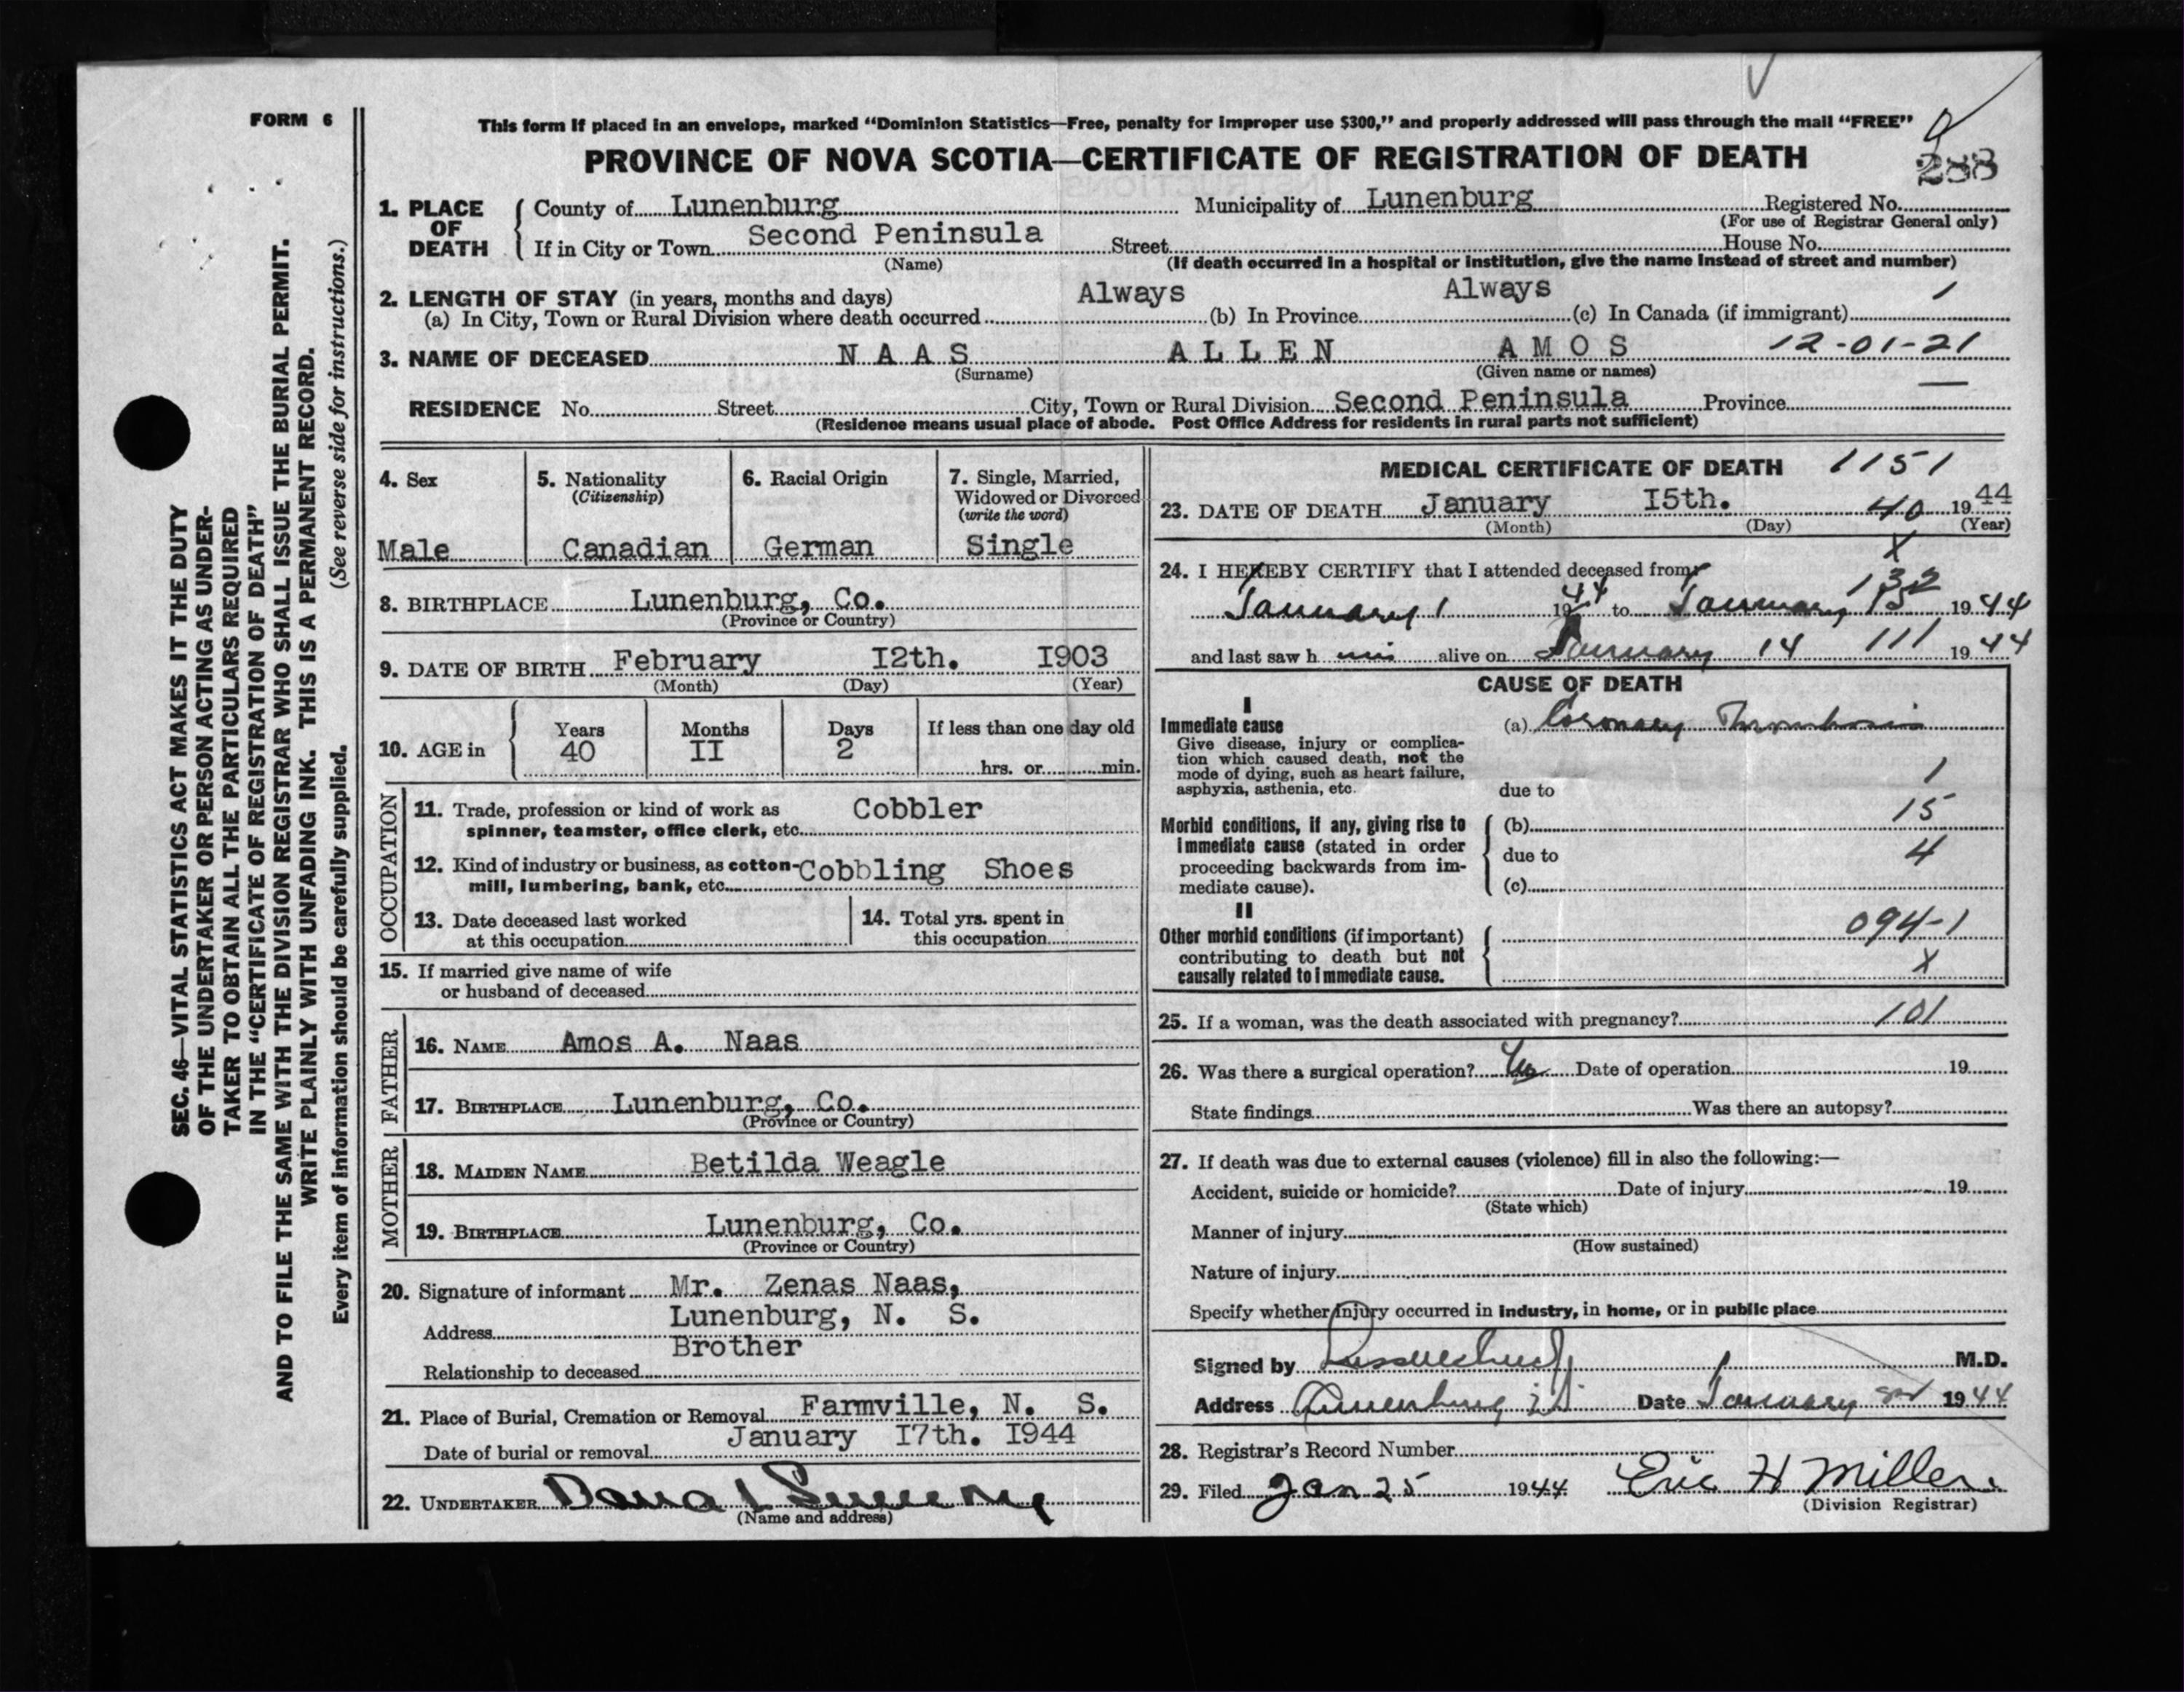 FORM 6
This form if placed in an envelope, marked "Dominion Statistics—Free, penalty for improper use $300," and properly addressed will pass through the mail "FREE"
PROVINCE OF NOVA SCOTIA—CERTIFICATE OF REGISTRATION OF DEATH
288
1. PLACE OF DEATH
County of Lunenburg Municipality of Lunenburg Registered No.
(For use of Registrar General only)
If in City or Town Second Peninsula Street House No.
(Name) (If death occurred in a hospital or institution, give the name instead of street and number)
2. LENGTH OF STAY (in years, months and days)
(a) In City, Town or Rural Division where death occurred Always (b) In Province Always (c) In Canada (if immigrant)
3. NAME OF DECEASED NAAS ALLEN AMOS 12-01-21
(Surname) (Given name or names)
RESIDENCE No. Street City, Town or Rural Division Second Peninsula Province
(Residence means usual place of abode. Post Office Address for residents in rural parts not sufficient)
4. Sex
Male
5. Nationality
(Citizenship)
Canadian
6. Racial Origin
German
7. Single, Married,
Widowed or Divorced
(write the word)
Single
8. BIRTHPLACE Lunenburg, Co.
(Province or Country)
9. DATE OF BIRTH February I2th. I903
(Month) (Day) (Year)
10. AGE in Years Months Days If less than one day old
40 II 2 hrs. or min.
OCCUPATION
11. Trade, profession or kind of work as Cobbler
spinner, teamster, office clerk, etc.
12. Kind of industry or business, as cotton- Cobbling Shoes
mill, lumbering, bank, etc.
13. Date deceased last worked
at this occupation
14. Total yrs. spent in
this occupation
15. If married give name of wife
or husband of deceased
FATHER
16. NAME Amos A. Naas
17. BIRTHPLACE Lunenburg, Co.
(Province or Country)
MOTHER
18. MAIDEN NAME Betilda Weagle
19. BIRTHPLACE Lunenburg, Co.
(Province or Country)
20. Signature of informant Mr. Zenas Naas,
Address Lunenburg, N. S.
Relationship to deceased Brother
21. Place of Burial, Cremation or Removal Farmville, N. S.
Date of burial or removal January I7th. I944
22. UNDERTAKER
(Name and address)
MEDICAL CERTIFICATE OF DEATH 1151
23. DATE OF DEATH January I5th. 40 1944
(Month) (Day) (Year)
X
24. I HEREBY CERTIFY that I attended deceased from
January 1 1944 to January 1944
and last saw h im alive on January 14 111 1944
CAUSE OF DEATH
I
Immediate cause (a) Coronary Thrombosis
Give disease, injury or complica-
tion which caused death, not the
mode of dying, such as heart failure,
asphyxia, asthenia, etc.
due to 1
Morbid conditions, if any, giving rise to (b) 15
immediate cause (stated in order due to 4
proceeding backwards from im-
mediate cause). (c)
II
Other morbid conditions (if important) 094-1
contributing to death but not X
causally related to immediate cause.
25. If a woman, was the death associated with pregnancy? 101
26. Was there a surgical operation? Date of operation 19
State findings Was there an autopsy?
27. If death was due to external causes (violence) fill in also the following:—
Accident, suicide or homicide? Date of injury 19
(State which)
Manner of injury
(How sustained)
Nature of injury
Specify whether injury occurred in industry, in home, or in public place
Signed by M.D.
Address Lunenburg N.S. Date January 1944
28. Registrar's Record Number
29. Filed Jan 25 1944 Eric H Miller
(Division Registrar)
SEC. 46—VITAL STATISTICS ACT MAKES IT THE DUTY
OF THE UNDERTAKER OR PERSON ACTING AS UNDER-
TAKER TO OBTAIN ALL THE PARTICULARS REQUIRED
IN THE "CERTIFICATE OF REGISTRATION OF DEATH"
AND TO FILE THE SAME WITH THE DIVISION REGISTRAR WHO SHALL ISSUE THE BURIAL PERMIT.
WRITE PLAINLY WITH UNFADING INK. THIS IS A PERMANENT RECORD.
Every item of information should be carefully supplied. (See reverse side for instructions.)